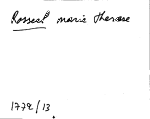 Rosseel marie therese
1779/13.